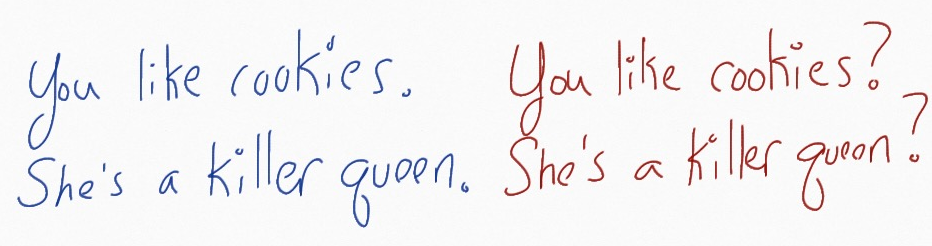 You like cookies. You like cookies?
She's a killer queen. She's a killer queen?